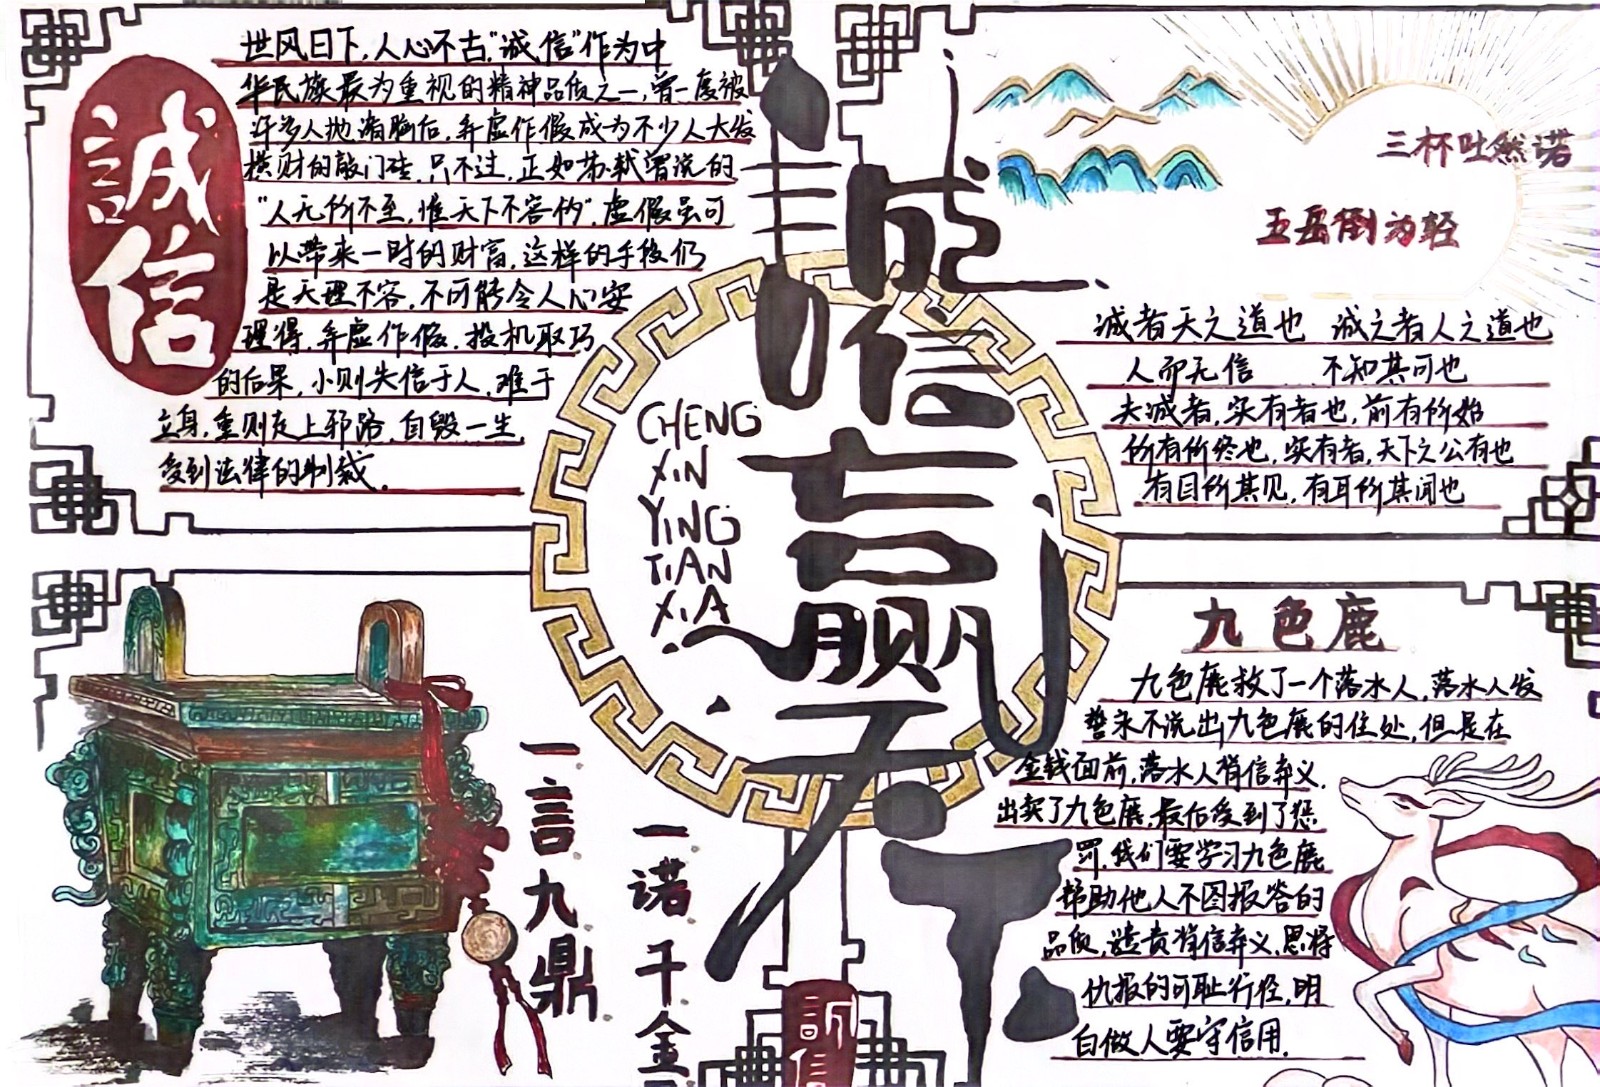 誠信
世风日下，人心不古，“诚信”作为中
华民族最为重视的精神品质之一，曾一度被
许多人抛诸脑后，弄虚作假成为不少人大发
横财的敲门砖，只不过，正如苏轼曾说的
“人无所不至，惟天下不容伪”，虚假虽可
以带来一时的财富，这样的手段仍
是天理不容，不可能令人心安
理得，弄虚作假，投机取巧
的后果，小则失信于人，难于
立身，重则走上邪路，自毁一生
受到法律的制裁。
诚信赢天下
CHENG
XIN
YING
TIAN
XIA
三杯吐然诺
五岳倒为轻
诚者天之道也 诚之者人之道也
人而无信 不知其可也
夫诚者，实有者也，前有所始
所有所终也，实有者，天下之公有也
有目所其见，有耳所其闻也
一言九鼎
一诺千金
誠信
九色鹿
九色鹿救了一个落水人，落水人发
誓永不说出九色鹿的住处，但是在
金钱面前，落水人背信弃义，
出卖了九色鹿，最后受到了惩
罚，我们要学习九色鹿
帮助他人不图报答的
品质，谴责背信弃义，恩将
仇报的可耻行径，明
白做人要守信用。